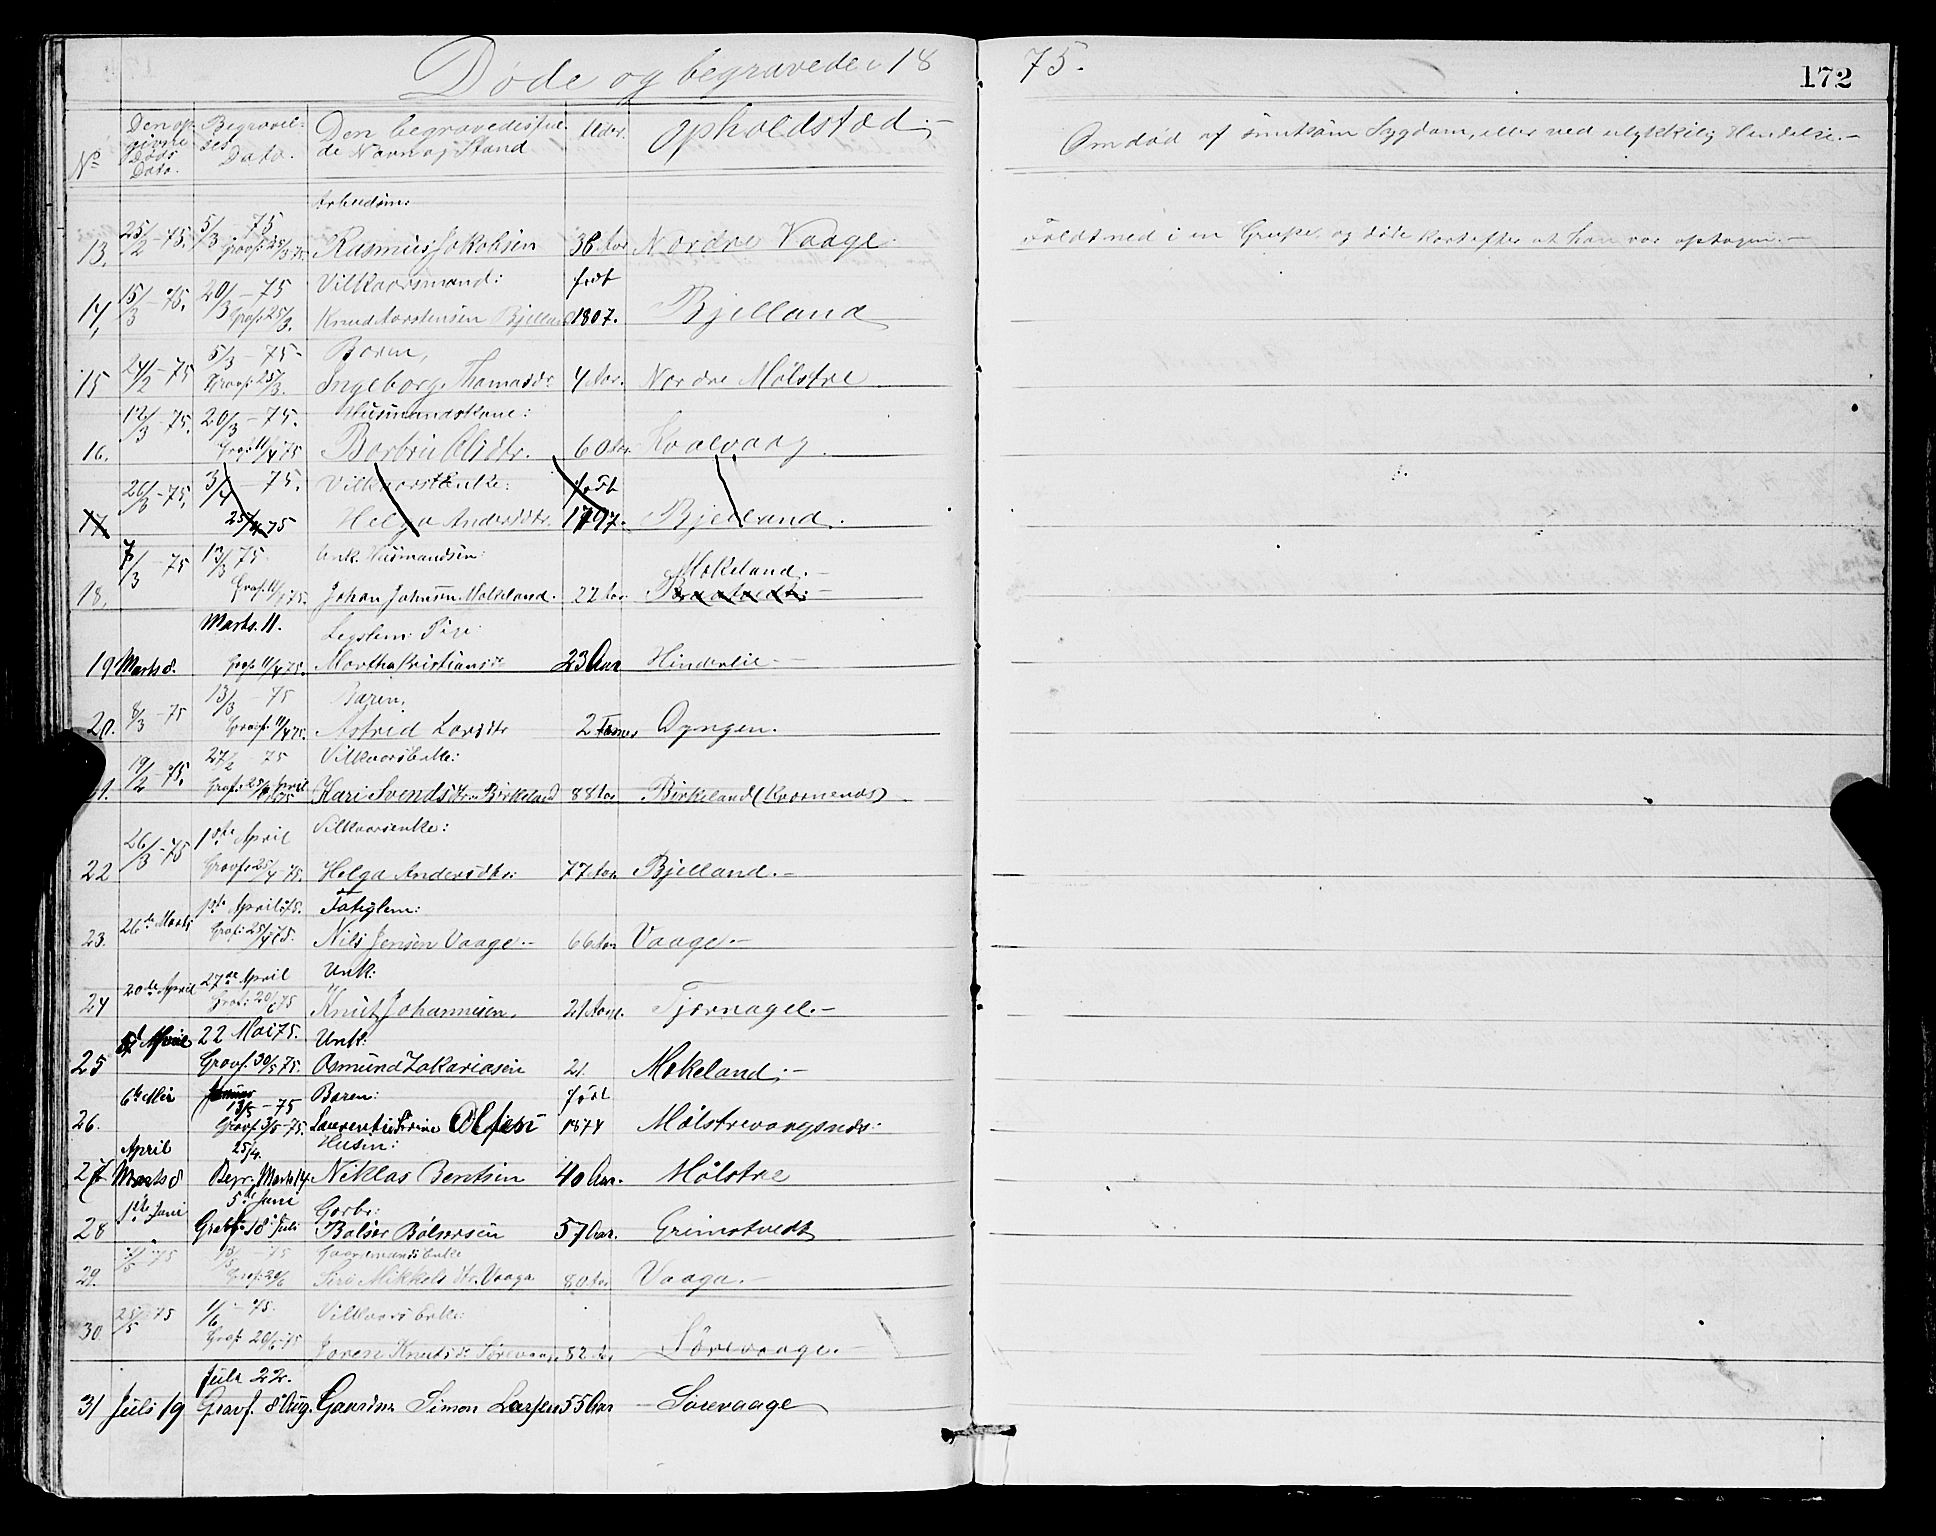 Døde og begravede i 1875.
172
No
Den opgivne Døds Dato.
Begravelses Dato.
Den begravedes fulde Navn og Stand
Alder.
Opholdstæd.
Om død af smitsom Sygdom, eller ved ulykkelig Hendelse.
Arbeidsm:
13. 25/2-75. 5/3 75 Grafs: 25/3 75. Rasmus Jakobsen 36 Aar Nordre Vaage
Faldt ned i en Grube og døde kort efter at han var optagen.
Vilkaarsmand: født
14, 15/3-75. 20/3-75 Grafs: 25/3. Knud Torstensen Bjelland 1807. Bjelland
Baren,
15 24/2-75 5/3-75- Graaf: 25/3. Ingeborg Thomasdr 4 Aar. Nordre Mølstre
Husmandskone:
16. 12/3-75. 20/3-75. Graf: 11/4 75 Barbru Olsdtr. 60 Aar Kvalvaag
Vilkaarsenke: født
17 26/3-75, 3/4-75. 25/4 75 Helga Andersdtr. 1797. Bjelland.
Unk. Husmandsen: Mokeland.
18, 7/3-75 13/3 75. Graf. 11/4 75. Johan Johnsen Mokeland. 22 Aar
Marts. 11. Legslem: Pige:
19 Marts 8. Graf 11/4 75. Martha Kristiansdr 23 Aar Hinderlie
Baren,
20. 8/3-75 13/3-75 Graaf: 11/4 75. Astrid Larsdtr 2 Timer Dyngen.
Vilkaarsenke:
21. 19/2-75. 27/2 75 Graf: 25/4 75 April Kari Svendsdtr Birkeland 88 Aar Birkeland (Kvarnenæs)
Vilkaarsenke:
22 26/3-75 1ste April Gravf: 25/4-75. Helga Andersdtr: 77 Aar Bjelland.
Fatiglem:
23. 26de Marts 1ste April 75. Graf: 25/4 75. Nils Jensen Vaage 66 Aar Vaage
Unk:
24 20de April 27de April Graf: 20/6 75 Knut Johannesen, 21 Aar. Tjernagel.
Unk:
25 April 22 Mai 75. Gravf. 30/5 75. Osmund Zakariasen 21 Mokeland
Baren: født
26. 6te Mai 13/5-75 Gravf 3/5-75. Laurentse Serine Olsen 1874 Mølstrevaagsnds:
April 25/4. Husm:
27 Marts 8 Begr. Marts 14. Niklas Bentsen 40 Aar. Mølstre
5te Juni Gorbr:
28 1ste Juni Gravf. 18 Juli Balser Balsersen 57 Aar. Grimstvedt
Gaardmandsenke
29. /5 75 /5-75 Graf: 20/6 Siri Mikkelsdtr. Vaage 80 Aar Vaage.
Vilkaarsenke:
30. 25/5 75 1/6-75. Graf. 20/6-75 Joren Knutsdr Sørevaage 82 Aar Sørevaage.
Juli 22.
31 Juli 19 Gravf. 8 Aug. Gaardm Simon Larsen 55 Aar Sørevaage